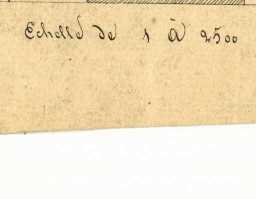 Echelle de 1 à 2500